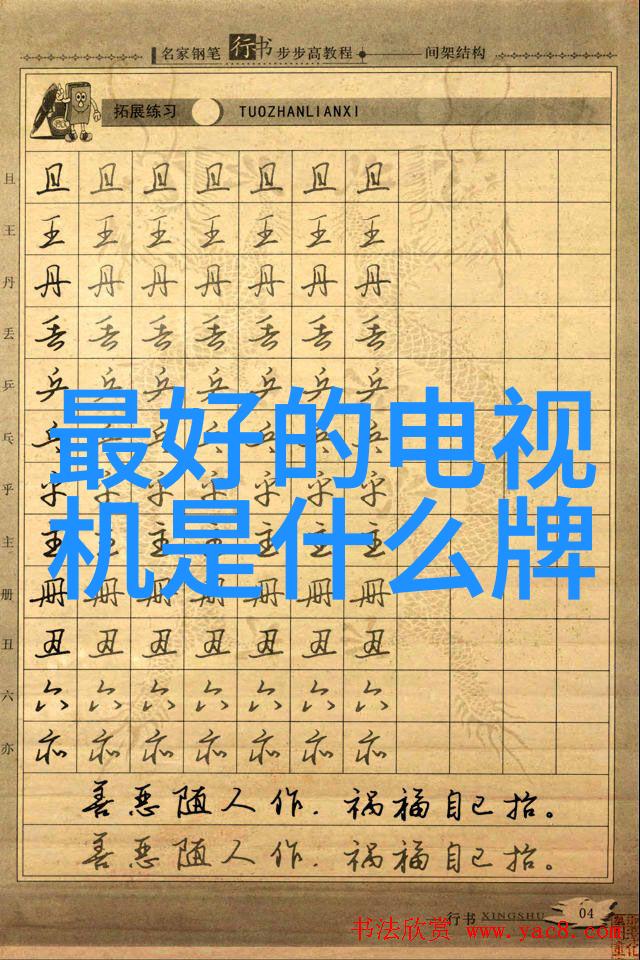 名家钢笔行书步步高教程 间架结构
拓展练习 TUOZHANLIANXI
且 且 且 且 且 且 且 且
王 王 王 王 王 王 王 王
丹 丹 丹 丹 丹 丹 丹 丹
丢 丢 丢 丢 丢 丢 丢 丢
乒 乒 乒 乒 乒 乒 乒 乒
最好的电视
乓 乓 乓 乓 乓 乓
乎 乎 乎 乎 乎 乎 乎 乎
机是什么牌
主 主 主 主 主 主 主
册 册 册 册 册 册 册 册
丑 丑 丑 丑 丑 丑 丑 丑
六 六 六 六 六 六 六 六
亦 亦 亦 亦 亦 亦 亦 亦
善恶随人作，祸福自己招。
善恶随人作，祸福自己招。
行书 XINGSHU 04
书法欣赏 www.yac8.com